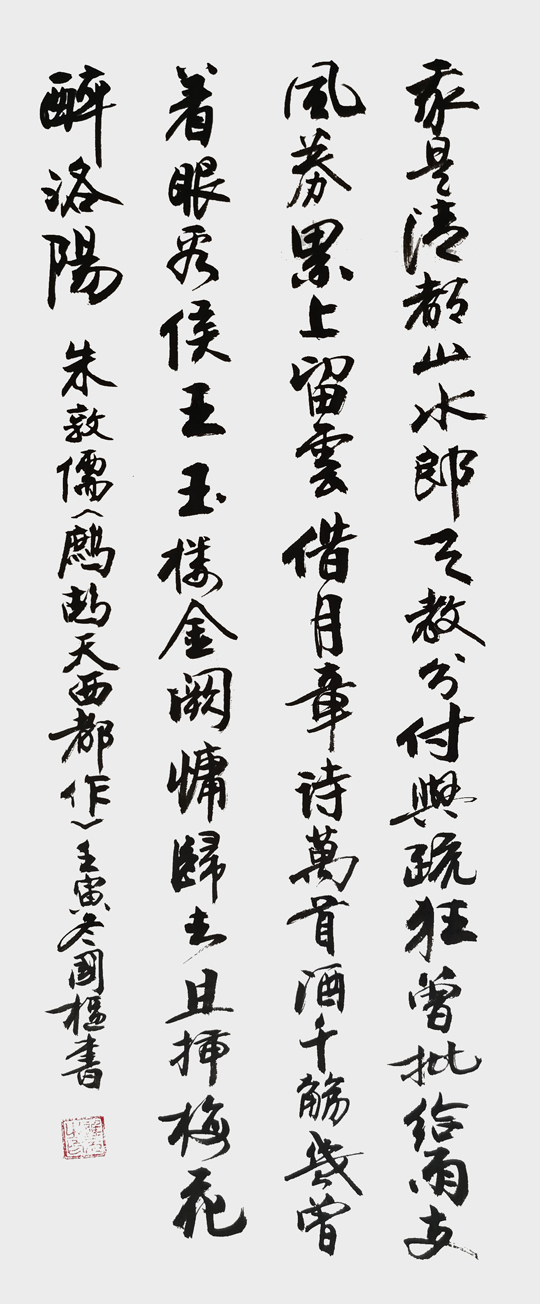 我是清都山水郎天教分付與疏狂曾批给雨支
風券累上留雲借月章诗萬首酒千觞幾曾
着眼看侯王玉楼金阙慵歸去且插梅花
醉洛陽 朱敦儒〈鹧鸪天西都作〉壬寅冬國樞書